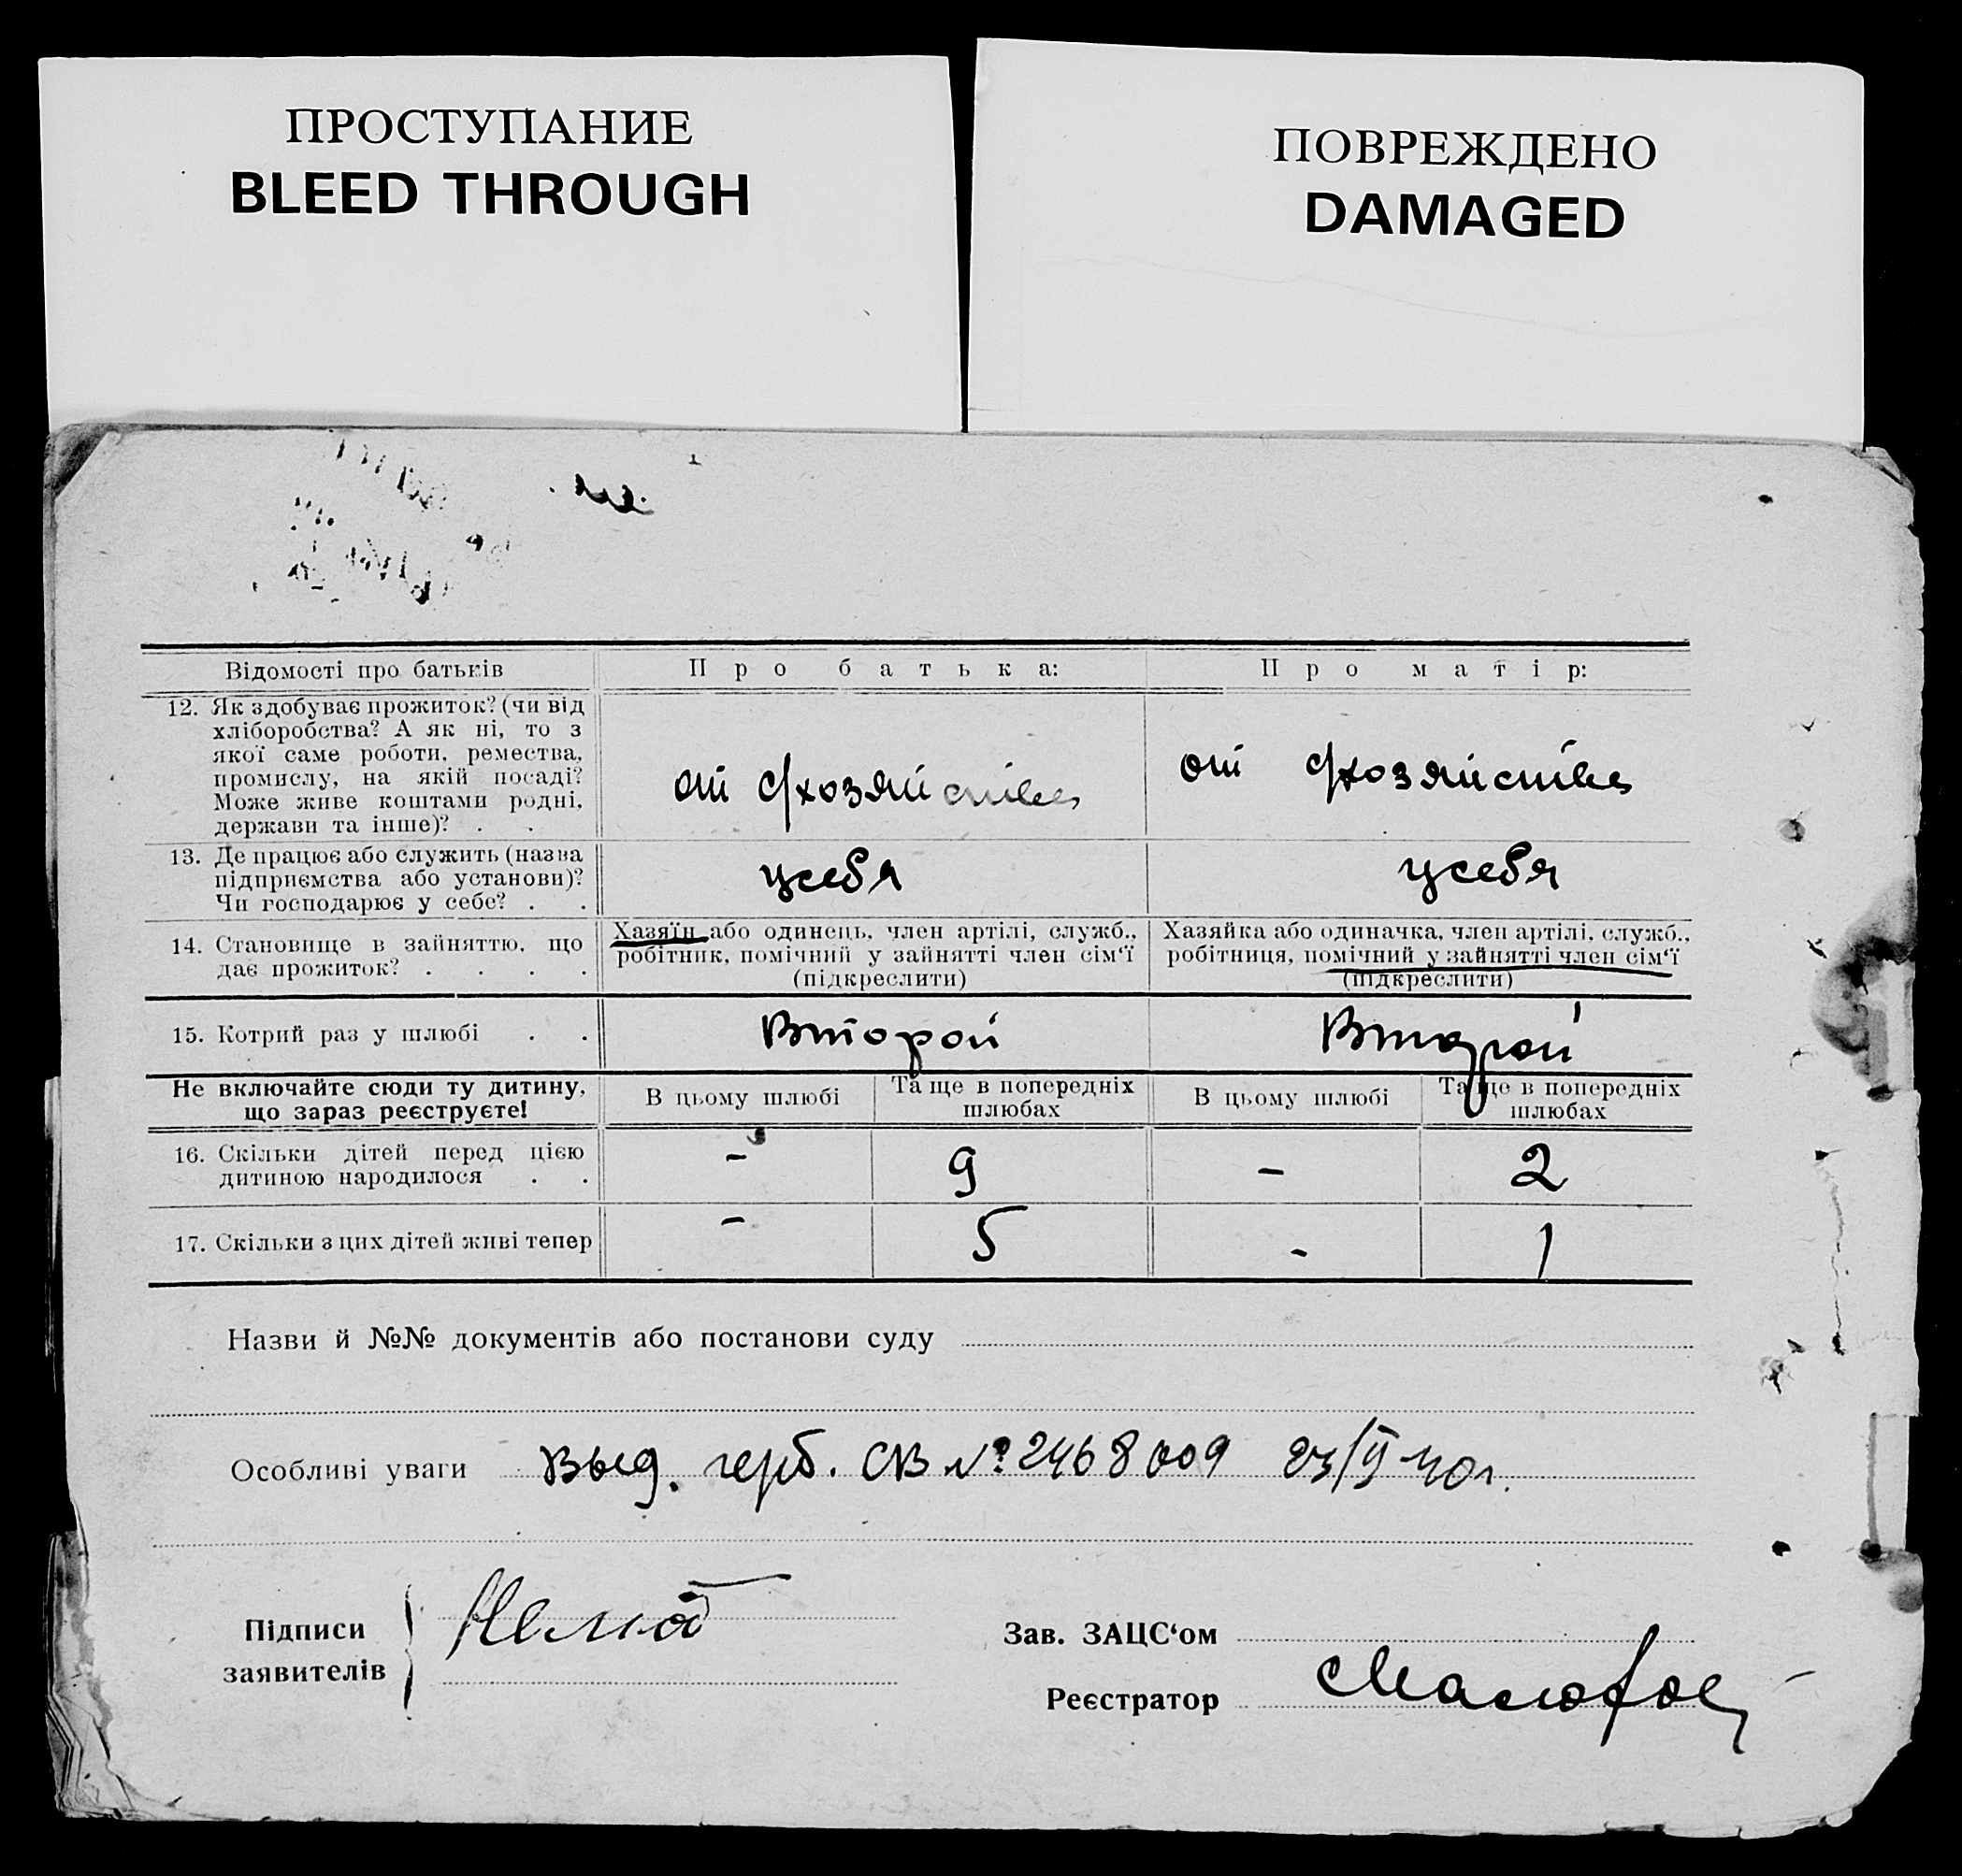 ПРОСТУПАНИЕ
BLEED THROUGH
ПОВРЕЖДЕНО
DAMAGED
Відомості про батьків
Про батька:
Про матір:
12. Як здобуває прожиток? (чи від
хліборобства? А як ні, то з
якої саме роботи, ремества,
промислу, на якій посаді?
Може живе коштами родні,
держави та інше)? . .
от с/хозяйства
от с/хозяйства
13. Де працює або служить (назва
підприємства або установи)?
Чи господарює у себе? . .
у себя
у себя
14. Становище в зайняттю, що
дає прожиток? . . . .
Хазяїн або одинець, член артілі, служб.,
робітник, помічний у зайнятті член сім‘ї
(підкреслити)
Хазяйка або одиначка, член артілі, служб.,
робітниця, помічний у зайнятті член сім‘ї
(підкреслити)
15. Котрий раз у шлюбі . .
Второй
Второй
Не включайте сюди ту дитину,
що зараз реєструєте!
В цьому шлюбі
Та ще в попередніх
шлюбах
В цьому шлюбі
Та ще в попередніх
шлюбах
16. Скільки дітей перед цією
дитиною народилося . .
- 9 - 2
17. Скільки з цих дітей живі тепер
- 5 - 1
Назви й №№ документів або постанови суду
Особливі уваги Выд. герб. СВ № 2468009 23/II 40г.
Підписи
заявителів
Зав. ЗАЦС‘ом
Реєстратор